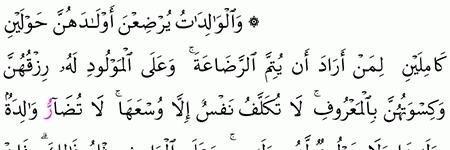 ۞ وَٱلْوَٰلِدَٰتُ يُرْضِعْنَ أَوْلَٰدَهُنَّ حَوْلَيْنِ
كَامِلَيْنِ لِمَنْ أَرَادَ أَن يُتِمَّ ٱلرَّضَاعَةَ ۚ وَعَلَى ٱلْمَوْلُودِ لَهُۥ رِزْقُهُنَّ
وَكِسْوَتُهُنَّ بِٱلْمَعْرُوفِ ۚ لَا تُكَلَّفُ نَفْسٌ إِلَّا وُسْعَهَا ۚ لَا تُضَآرُّ وَٰلِدَةُۢ